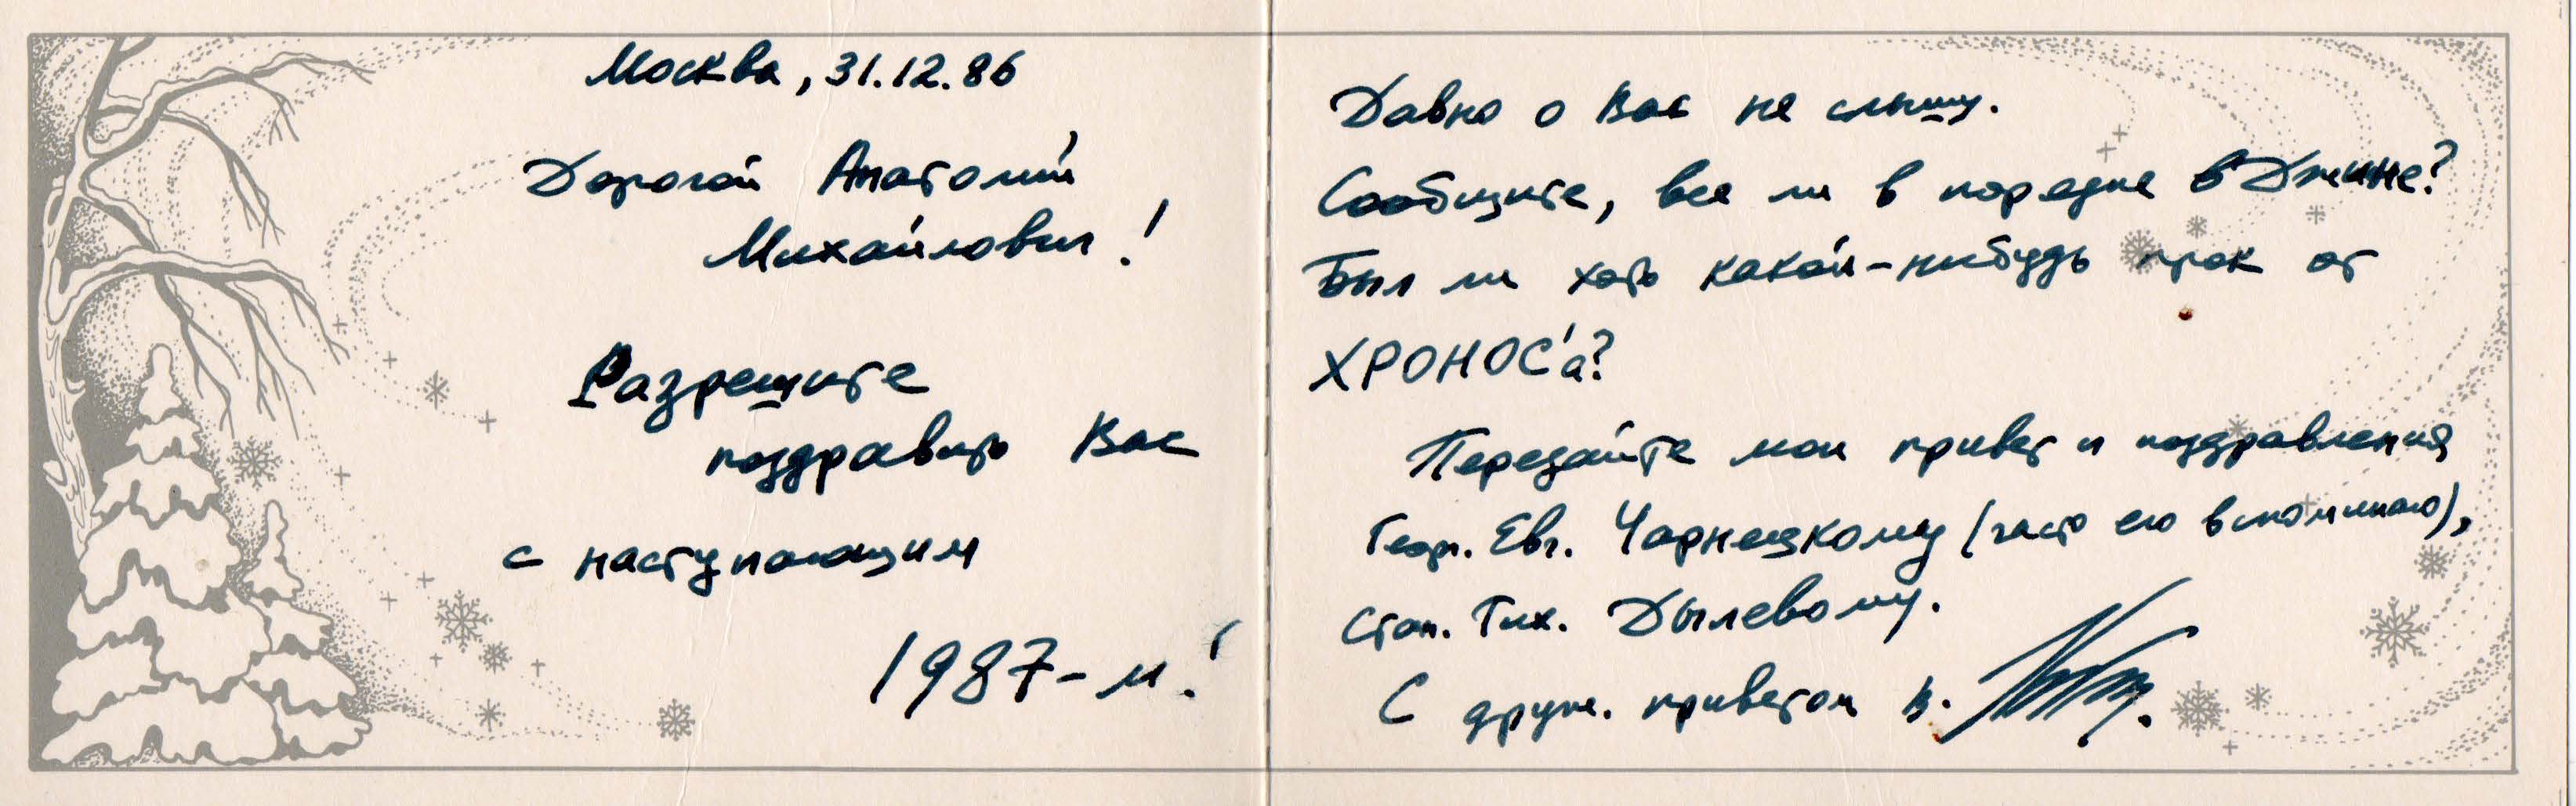 Москва, 31.12.86
Дорогой Анатолий
Михайлович!
Разрешите
поздравить Вас
с наступающим
1987-м!
Давно о Вас не слышу.
Сообщите, все ли в порядке в Джине?
Был ли хоть какой-нибудь прок от
ХРОНОС'а?
Передайте мои привет и поздравления
Георг. Евг. Чарнецкому (часто его вспоминаю),
Стан. Тих. Дылевому.
С друж. приветом В.